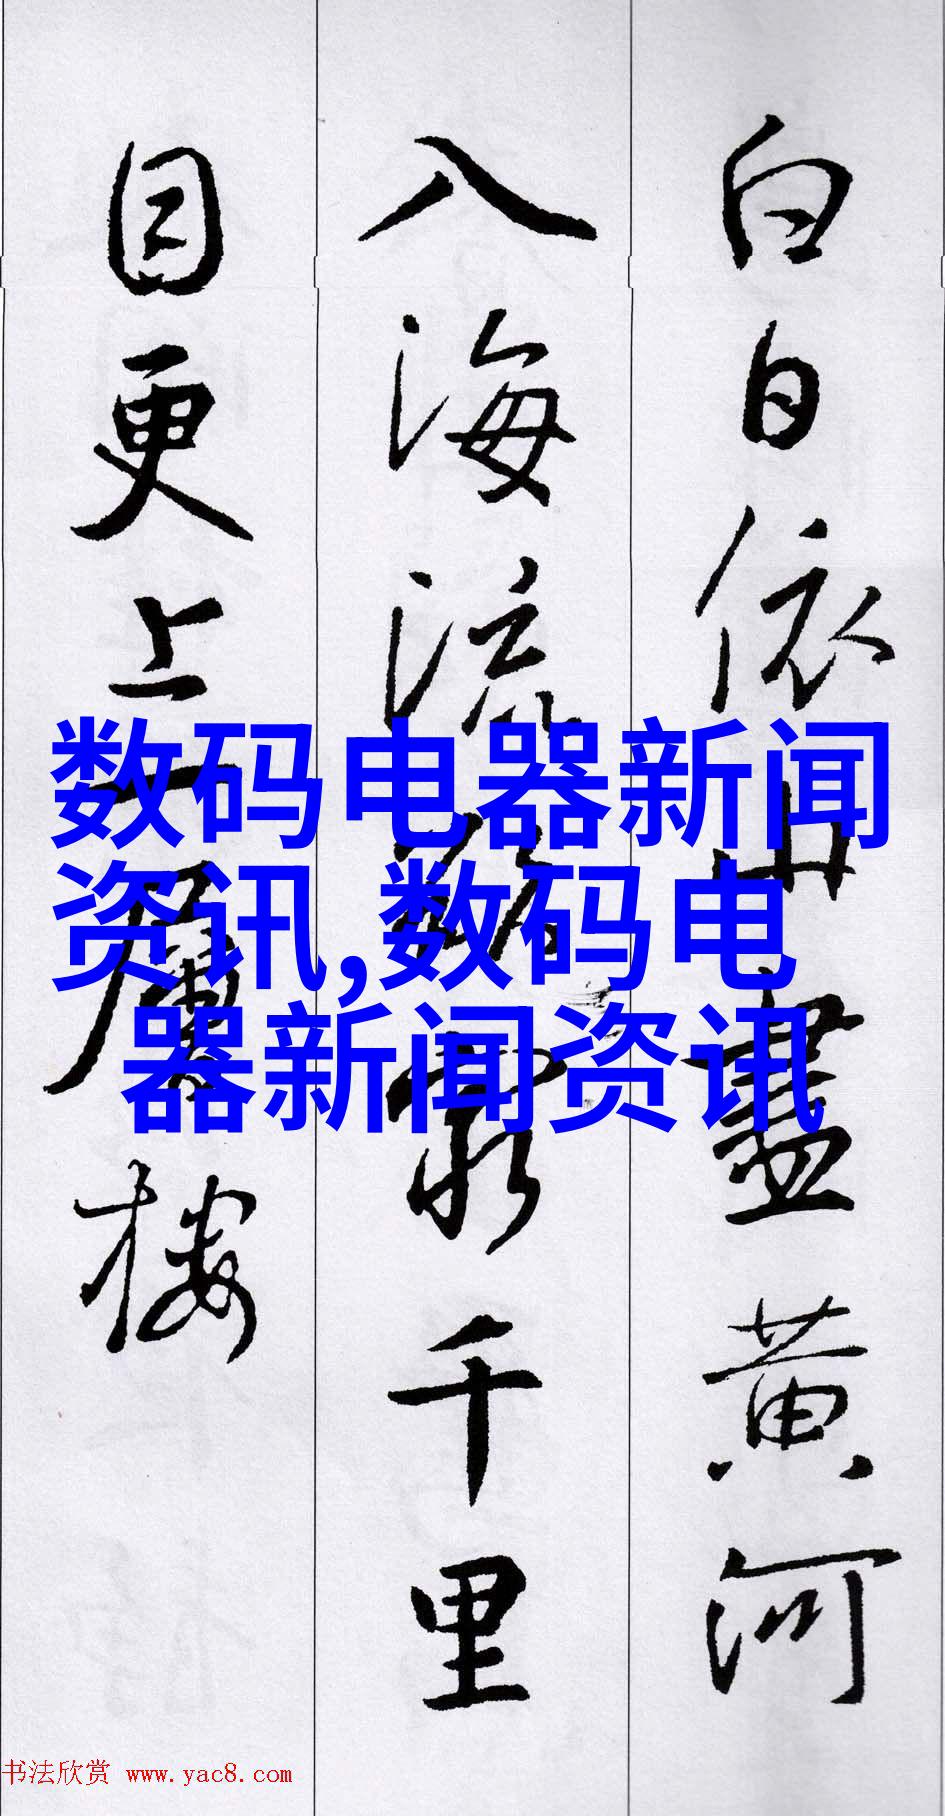 白日依山盡黄河
入海流欲窮千里
目更上一層楼
数码电器新闻
资讯,数码电
器新闻资讯
书法欣赏 www.yac8.com